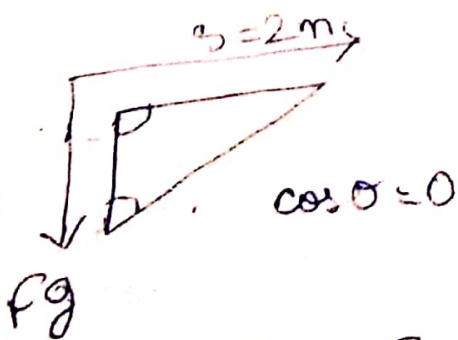 s = 2m
cos θ = 0
Fg